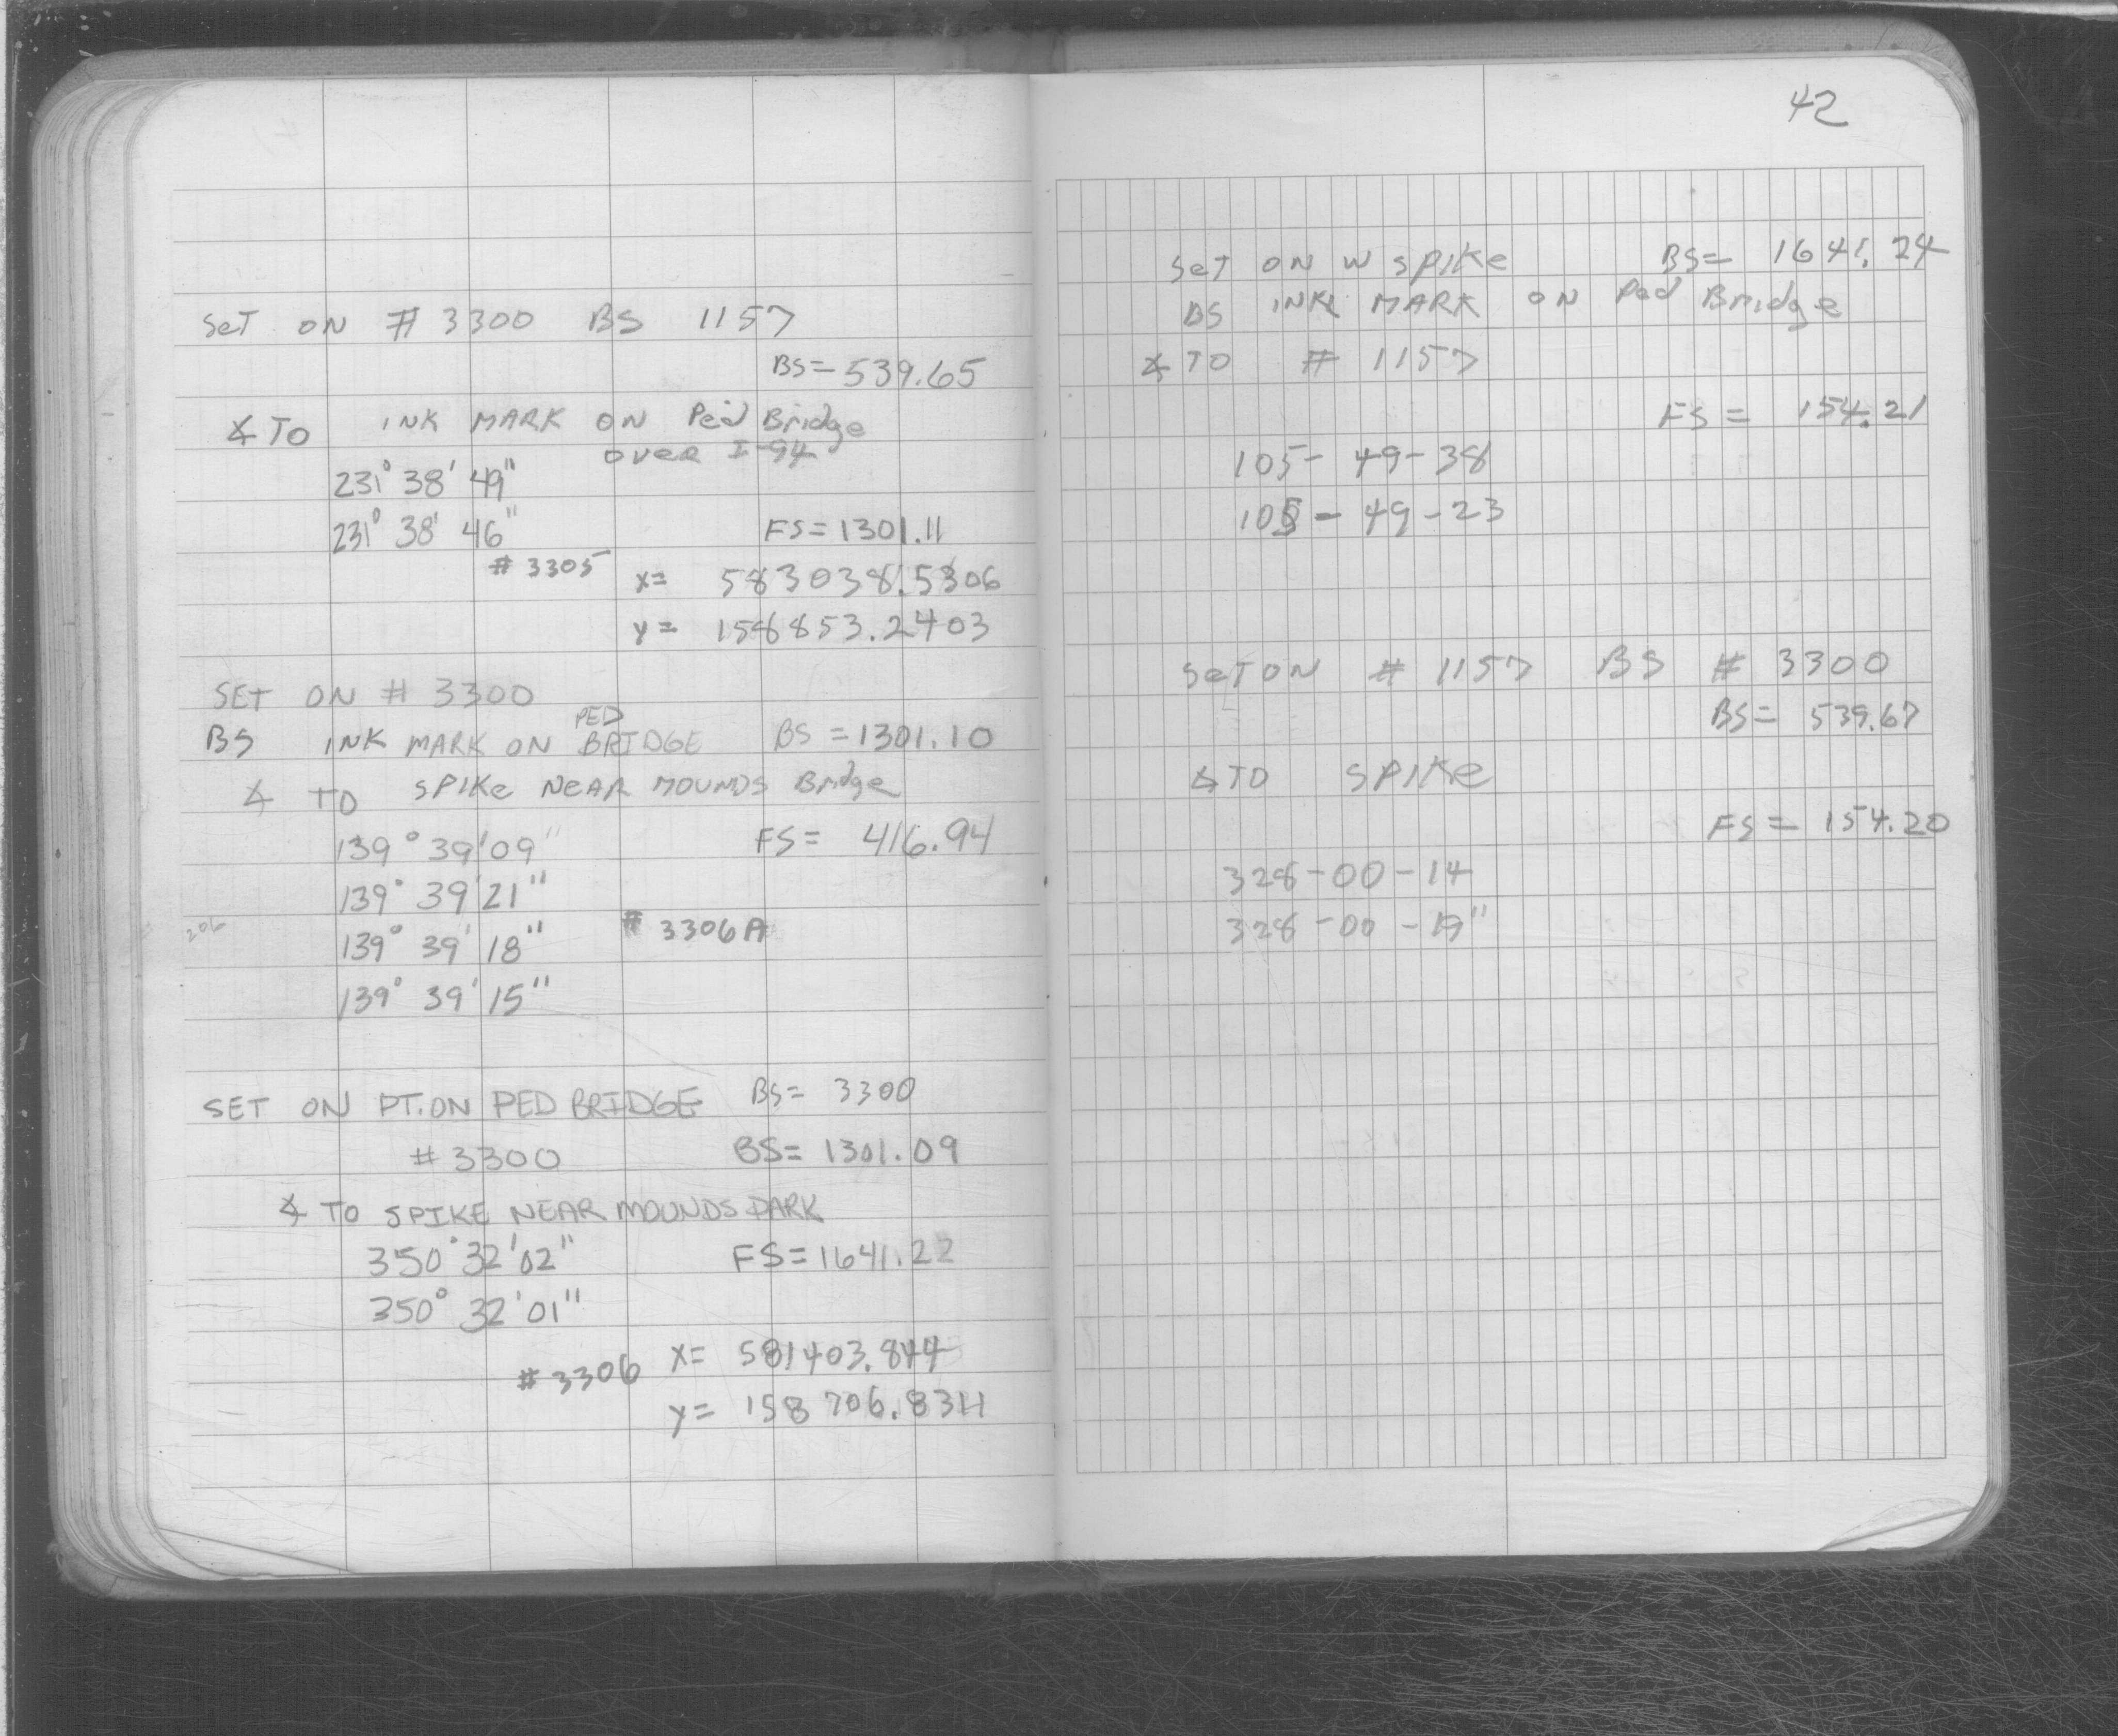 SeT ON # 3300 BS 1157
BS= 539.65
∡ TO INK MARK ON Ped Bridge
OVER I-94
231° 38' 49"
231° 38' 46" FS= 1301.11
# 3305 x= 583038.5306
y= 158853.2403
SET ON # 3300
PED
BS INK MARK ON BRIDGE BS = 1301.10
∡ TO SPIKE NEAR MOUNDS Bridge
139° 39' 09" FS= 416.94
139° 39' 21"
206 139° 39' 18" # 3306A
139° 39' 15"
SET ON PT. ON PED BRIDGE BS= 3300
# 3300 BS= 1301.09
∡ TO SPIKE NEAR MOUNDS PARK
350° 32' 02" FS= 1641.22
350° 32' 01"
# 3306 x= 581403.844
y= 158706.8311
42
SeT ON W SPIKE BS= 1641.24
BS INK MARK ON Ped Bridge
∡ TO # 1157
FS = 154.21
105- 49-38
105 - 49-23
SeT ON # 1157 BS # 3300
BS= 539.67
∡ TO SPIKE
FS= 154.20
328-00-14
328-00-19"